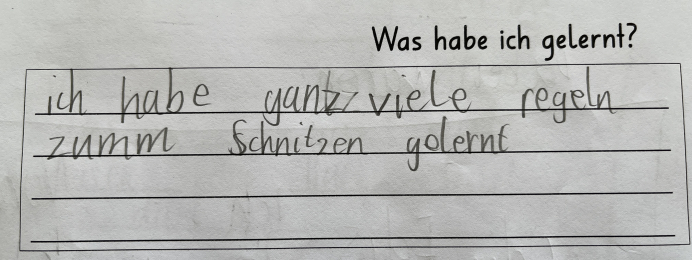 Was habe ich gelernt?
ich habe ganz viele regeln
zumm Schnitzen golernt